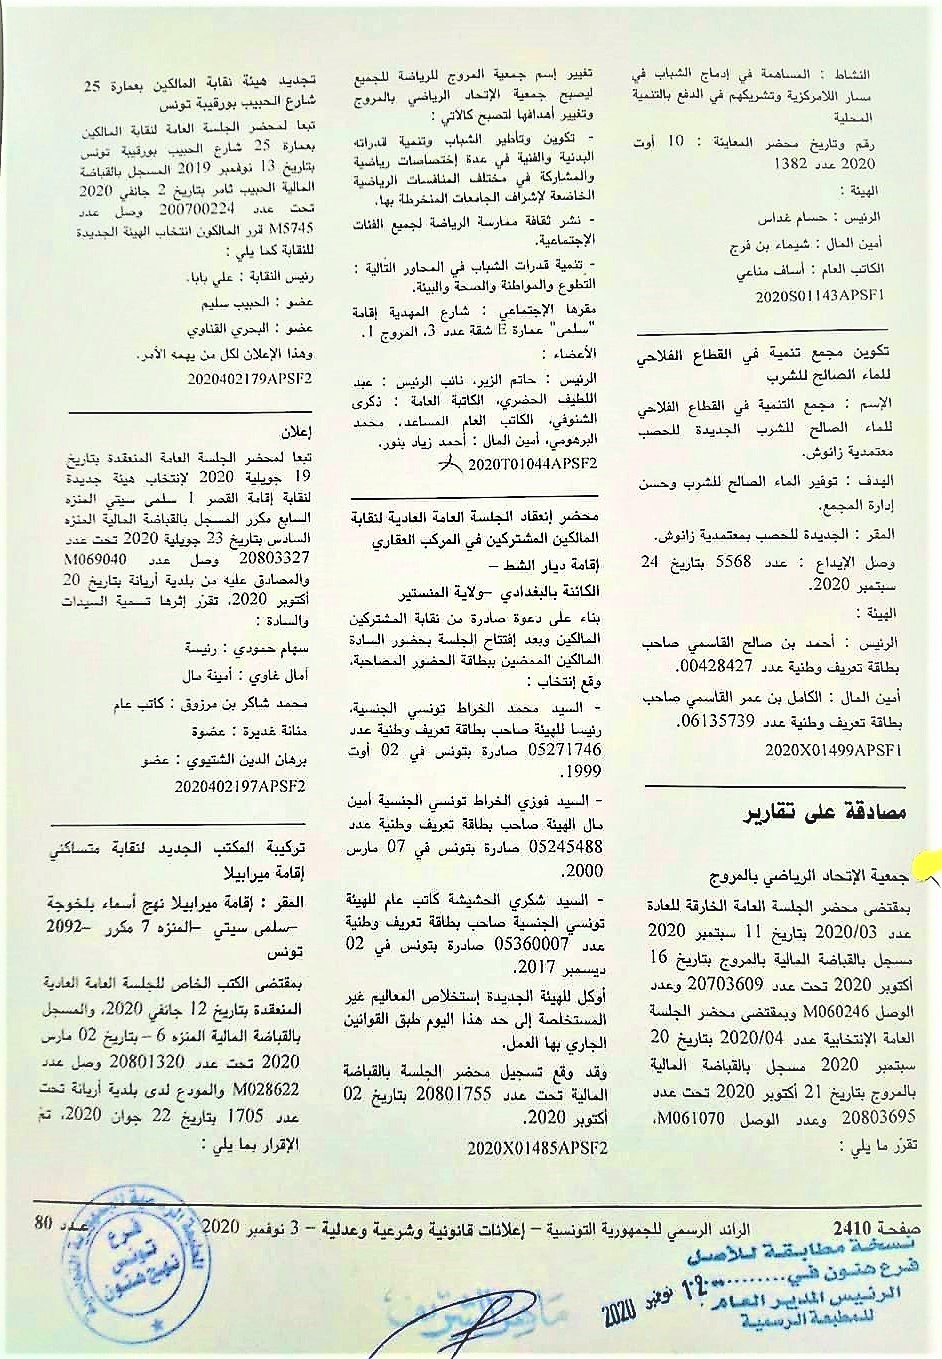 النشاط : المساهمة في إدماج الشباب في
مسار اللامركزية وتشريكهم في الدفع بالتنمية
المحلية
رقم وتاريخ محضر المعاينة : 10 أوت
2020 عدد 1382
الهيئة :
الرئيس : حسام غداس
أمين المال : شيماء بن فرج
الكاتب العام : أساف مناعي
2020S01143APSF1
تكوين مجمع تنمية في القطاع الفلاحي
للماء الصالح للشرب
الإسم : مجمع التنمية في القطاع الفلاحي
للماء الصالح للشرب الجديدة للحصب
معتمدية زانوش.
الهدف : توفير الماء الصالح للشرب وحسن
إدارة المجمع.
المقر : الجديدة للحصب بمعتمدية زانوش.
وصل الإيداع : عدد 5568 بتاريخ 24
سبتمبر 2020.
الهيئة :
الرئيس : أحمد بن صالح القاسمي صاحب
بطاقة تعريف وطنية عدد 00428427.
أمين المال : الكامل بن عمر القاسمي صاحب
بطاقة تعريف وطنية عدد 06135739.
2020X01499APSF1
مصادقة على تقارير
جمعية الإتحاد الرياضي بالمروج
بمقتضى محضر الجلسة العامة الخارقة للعادة
عدد 2020/03 بتاريخ 11 سبتمبر 2020
مسجل بالقباضة المالية بالمروج بتاريخ 16
أكتوبر 2020 تحت عدد 20703609 وعدد
الوصل M060246 وبمقتضى محضر الجلسة
العامة الإنتخابية عدد 2020/04 بتاريخ 20
سبتمبر 2020 مسجل بالقباضة المالية
بالمروج بتاريخ 21 أكتوبر 2020 تحت عدد
20803695 وعدد الوصل M061070،
تقرّر ما يلي :
تغيير إسم جمعية المروج للرياضة للجميع
ليصبح جمعية الإتحاد الرياضي بالمروج
وتغيير أهدافها لتصبح كالآتي :
- تكوين وتأطير الشباب وتنمية قدراته
البدنية والفنية في عدة إختصاصات رياضية
والمشاركة في مختلف المنافسات الرياضية
الخاضعة لإشراف الجامعات المنخرطة بها.
- نشر ثقافة ممارسة الرياضة لجميع الفئات
الإجتماعية.
- تنمية قدرات الشباب في المحاور التالية :
التطوع والمواطنة والصحة والبيئة.
مقرها الإجتماعي : شارع المهدية إقامة
"سلمى" عمارة E شقة عدد 3، المروج 1.
الأعضاء :
الرئيس : حاتم الزير، نائب الرئيس : عبد
اللطيف الحضري، الكاتبة العامة : ذكرى
الشنوفي، الكاتب العام المساعد، محمد
البرهومي، أمين المال : أحمد زياد بنور.
2020T01044APSF2
محضر إنعقاد الجلسة العامة العادية لنقابة
المالكين المشتركين في المركب العقاري
إقامة ديار الشط –
الكائنة بالبغدادي –ولاية المنستير
بناء على دعوة صادرة من نقابة المشتركين
المالكين وبعد إفتتاح الجلسة بحضور السادة
المالكين الممضين ببطاقة الحضور المصاحبة،
وقع إنتخاب :
- السيد محمد الخراط تونسي الجنسية،
رئيسا للهيئة صاحب بطاقة تعريف وطنية عدد
05271746 صادرة بتونس في 02 أوت
1999.
- السيد فوزي الخراط تونسي الجنسية أمين
مال الهيئة صاحب بطاقة تعريف وطنية عدد
05245488 صادرة بتونس في 07 مارس
2000.
- السيد شكري الحشيشة كاتب عام للهيئة
تونسي الجنسية صاحب بطاقة تعريف وطنية
عدد 05360007 صادرة بتونس في 02
ديسمبر 2017.
أوكل للهيئة الجديدة إستخلاص المعاليم غير
المستخلصة إلى حد هذا اليوم طبق القوانين
الجاري بها العمل.
وقد وقع تسجيل محضر الجلسة بالقباضة
المالية تحت عدد 20801755 بتاريخ 02
أكتوبر 2020.
2020X01485APSF2
تجديد هيئة نقابة المالكين بعمارة 25
شارع الحبيب بورقيبة تونس
تبعا لمحضر الجلسة العامة لنقابة المالكين
بعمارة 25 شارع الحبيب بورقيبة تونس
بتاريخ 13 نوفمبر 2019 المسجل بالقباضة
المالية الحبيب ثامر بتاريخ 2 جانفي 2020
تحت عدد 200700224 وصل عدد
M5745 قرر المالكون انتخاب الهيئة الجديدة
للنقابة كما يلي :
رئيس النقابة : علي بابا.
عضو : الحبيب سليم
عضو : البحري القناوي
وهذا الإعلان لكل من يهمه الأمر.
2020402179APSF2
إعلان
تبعا لمحضر الجلسة العامة المنعقدة بتاريخ
19 جويلية 2020 لإنتخاب هيئة جديدة
لنقابة إقامة القصر 1 سلمى سيتي المنزه
السابع مكرر المسجل بالقباضة المالية المنزه
السادس بتاريخ 23 جويلية 2020 تحت عدد
20803327 وصل عدد M069040
والمصادق عليه من بلدية أريانة بتاريخ 20
أكتوبر 2020، تقرّر إثرها تسمية السيدات
والسادة :
سهام حمودي : رئيسة
أمال غاوي : أمينة مال
محمد شاكر بن مرزوق : كاتب عام
منانة غديرة : عضوة
برهان الدين الشتيوي : عضو
2020402197APSF2
تركيبة المكتب الجديد لنقابة متساكني
إقامة ميرابيلا
المقر : إقامة ميرابيلا نهج أسماء بلخوجة
–سلمى سيتي –المنزه 7 مكرر –2092
تونس
بمقتضى الكتب الخاص للجلسة العامة العادية
المنعقدة بتاريخ 12 جانفي 2020، والمسجل
بالقباضة المالية المنزه 6 –بتاريخ 02 مارس
2020 تحت عدد 20801320 وصل عدد
M028622 والمودع لدى بلدية أريانة تحت
عدد 1705 بتاريخ 22 جوان 2020، تمّ
الإقرار بما يلي :
صفحة 2410 الرائد الرسمي للجمهورية التونسية – إعلانات قانونية وشرعية وعدلية – 3 نوفمبر 2020 عدد 80
نسخة مطابقة للأصل
فرع هنون في
نوفمبر 2020
الرئيس المدير العام
للمطبعة الرسمية
فرع
تونس
نهج هنون